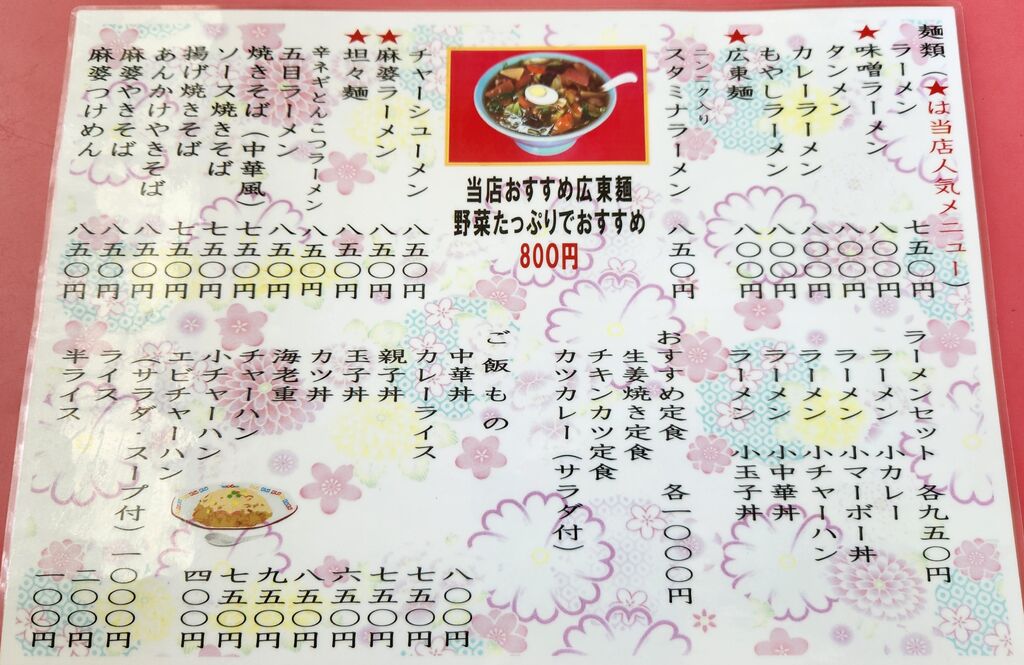 麺類(★は当店人気メニュー)
ラーメン 七五〇円
★味噌ラーメン 八〇〇円
タンメン 八〇〇円
カレーラーメン 八〇〇円
もやしラーメン 八〇〇円
★広東麺 八〇〇円
ニンニク入り
スタミナラーメン 八五〇円
当店おすすめ広東麺
野菜たっぷりでおすすめ
800円
チャーシューメン 八五〇円
★麻婆ラーメン 八五〇円
★坦々麺 八五〇円
辛ネギとんこつラーメン 八五〇円
五目ラーメン 八五〇円
焼きそば(中華風) 七五〇円
ソース焼きそば 七五〇円
揚げ焼きそば 七五〇円
あんかけやきそば 八五〇円
麻婆やきそば 八五〇円
麻婆つけめん 八五〇円
ラーメンセット 各九五〇円
ラーメン 小カレー
ラーメン 小マーボー丼
ラーメン 小チャーハン
ラーメン 小中華丼
ラーメン 小玉子丼
おすすめ定食 各一〇〇〇円
生姜焼き定食
チキンカツ定食
カツカレー(サラダ付)
ご飯もの
中華丼 八〇〇円
カレーライス 七五〇円
親子丼 七五〇円
玉子丼 六五〇円
カツ丼 八五〇円
海老重 九五〇円
チャーハン 七五〇円
小チャーハン 四〇〇円
エビチャーハン
(サラダ・スープ付) 一〇〇〇円
ライス 二〇〇円
半ライス 一〇〇円